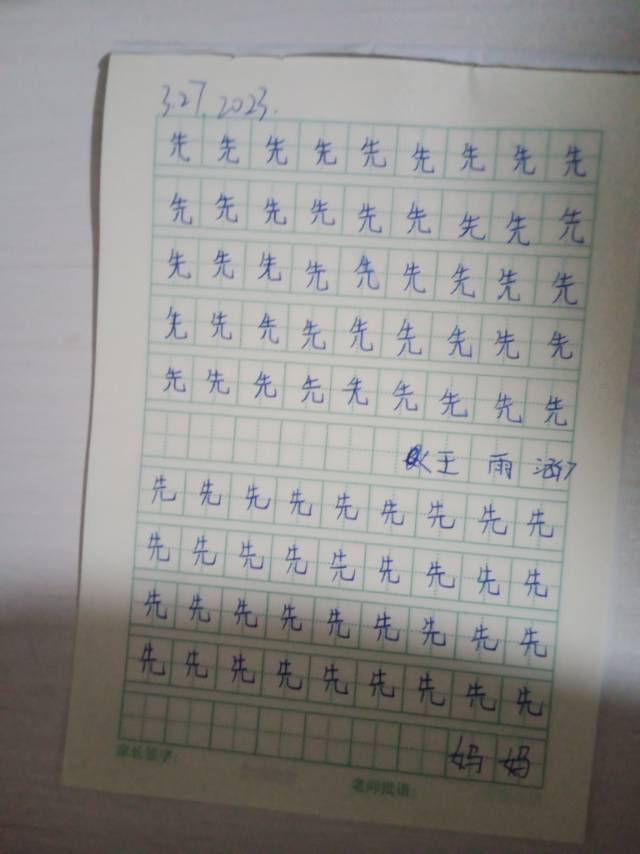 3.27.2023.
先先先先先先先先先
先先先先先先先先先
先先先先先先先先先
先先先先先先先先先
先先先先先先先先先
王雨涵
先先先先先先先先先
先先先先先先先先先
先先先先先先先先先
先先先先先先先先先
妈妈
家长签字：
老师批语：